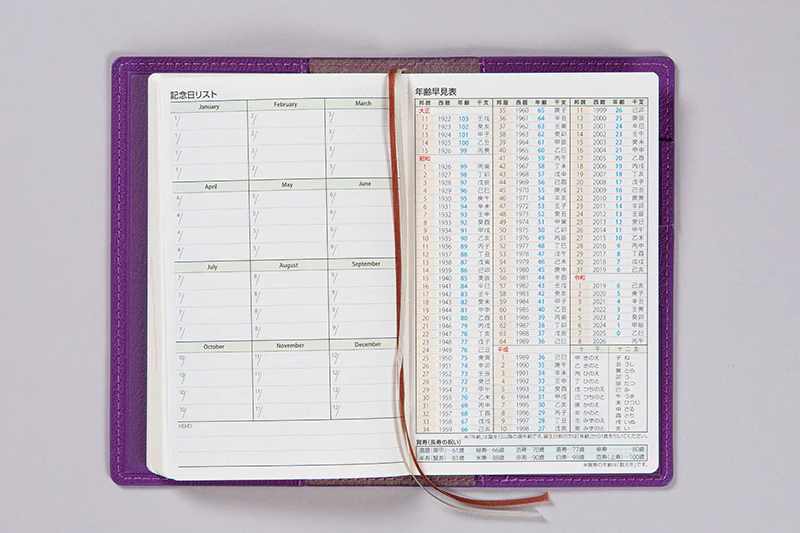 記念日リスト
January February March
1/ 2/ 3/
1/ 2/ 3/
1/ 2/ 3/
1/ 2/ 3/
April May June
4/ 5/ 6/
4/ 5/ 6/
4/ 5/ 6/
4/ 5/ 6/
July August September
7/ 8/ 9/
7/ 8/ 9/
7/ 8/ 9/
7/ 8/ 9/
October November December
10/ 11/ 12/
10/ 11/ 12/
10/ 11/ 12/
10/ 11/ 12/
MEMO
年齢早見表
邦暦 西暦 年齢 干支
大正
11 1922 103 壬戌
12 1923 102 癸亥
13 1924 101 甲子
14 1925 100 乙丑
15 1926 99 丙寅
昭和
1 1926 99 丙寅
2 1927 98 丁卯
3 1928 97 戊辰
4 1929 96 己巳
5 1930 95 庚午
6 1931 94 辛未
7 1932 93 壬申
8 1933 92 癸酉
9 1934 91 甲戌
10 1935 90 乙亥
11 1936 89 丙子
12 1937 88 丁丑
13 1938 87 戊寅
14 1939 86 己卯
15 1940 85 庚辰
16 1941 84 辛巳
17 1942 83 壬午
18 1943 82 癸未
19 1944 81 甲申
20 1945 80 乙酉
21 1946 79 丙戌
22 1947 78 丁亥
23 1948 77 戊子
24 1949 76 己丑
25 1950 75 庚寅
26 1951 74 辛卯
27 1952 73 壬辰
28 1953 72 癸巳
29 1954 71 甲午
30 1955 70 乙未
31 1956 69 丙申
32 1957 68 丁酉
33 1958 67 戊戌
34 1959 66 己亥
邦暦 西暦 年齢 干支
35 1960 65 庚子
36 1961 64 辛丑
37 1962 63 壬寅
38 1963 62 癸卯
39 1964 61 甲辰
40 1965 60 乙巳
41 1966 59 丙午
42 1967 58 丁未
43 1968 57 戊申
44 1969 56 己酉
45 1970 55 庚戌
46 1971 54 辛亥
47 1972 53 壬子
48 1973 52 癸丑
49 1974 51 甲寅
50 1975 50 乙卯
51 1976 49 丙辰
52 1977 48 丁巳
53 1978 47 戊午
54 1979 46 己未
55 1980 45 庚申
56 1981 44 辛酉
57 1982 43 壬戌
58 1983 42 癸亥
59 1984 41 甲子
60 1985 40 乙丑
61 1986 39 丙寅
62 1987 38 丁卯
63 1988 37 戊辰
64 1989 36 己巳
平成
1 1989 36 己巳
2 1990 35 庚午
3 1991 34 辛未
4 1992 33 壬申
5 1993 32 癸酉
6 1994 31 甲戌
7 1995 30 乙亥
8 1996 29 丙子
9 1997 28 丁丑
10 1998 27 戊寅
邦暦 西暦 年齢 干支
11 1999 26 己卯
12 2000 25 庚辰
13 2001 24 辛巳
14 2002 23 壬午
15 2003 22 癸未
16 2004 21 甲申
17 2005 20 乙酉
18 2006 19 丙戌
19 2007 18 丁亥
20 2008 17 戊子
21 2009 16 己丑
22 2010 15 庚寅
23 2011 14 辛卯
24 2012 13 壬辰
25 2013 12 癸巳
26 2014 11 甲午
27 2015 10 乙未
28 2016 9 丙申
29 2017 8 丁酉
30 2018 7 戊戌
31 2019 6 己亥
令和
1 2019 6 己亥
2 2020 5 庚子
3 2021 4 辛丑
4 2022 3 壬寅
5 2023 2 癸卯
6 2024 1 甲辰
7 2025 0 乙巳
8 2026 丙午
十干 十二支
甲 きのえ 子 ね
乙 きのと 丑 うし
丙 ひのえ 寅 とら
丁 ひのと 卯 う
戊 つちのえ 辰 たつ
己 つちのと 巳 み
庚 かのえ 午 うま
辛 かのと 未 ひつじ
壬 みずのえ 申 さる
癸 みずのと 酉 とり
戌 いぬ
亥 い
※「年齢」は誕生日以降の満年齢です。誕生日前の方は「年齢」から1歳を引いてください。
賀寿(長寿の祝い)
還暦(華甲)…61歳 緑寿…66歳 古稀…70歳 喜寿…77歳 傘寿…80歳
半寿(盤寿)…81歳 米寿…88歳 卒寿…90歳 白寿…99歳 百寿(上寿)…100歳
※賀寿の年齢は「数え年」です。